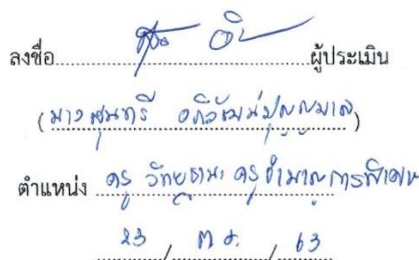 ลงชื่อ..........ผู้ประเมิน
(นางสุนทรี อภิวัฒน์ปุญญมาล)
ตำแหน่ง ครู วิทยฐานะ ครูชำนาญการพิเศษ
23 / ต.ค. / 63